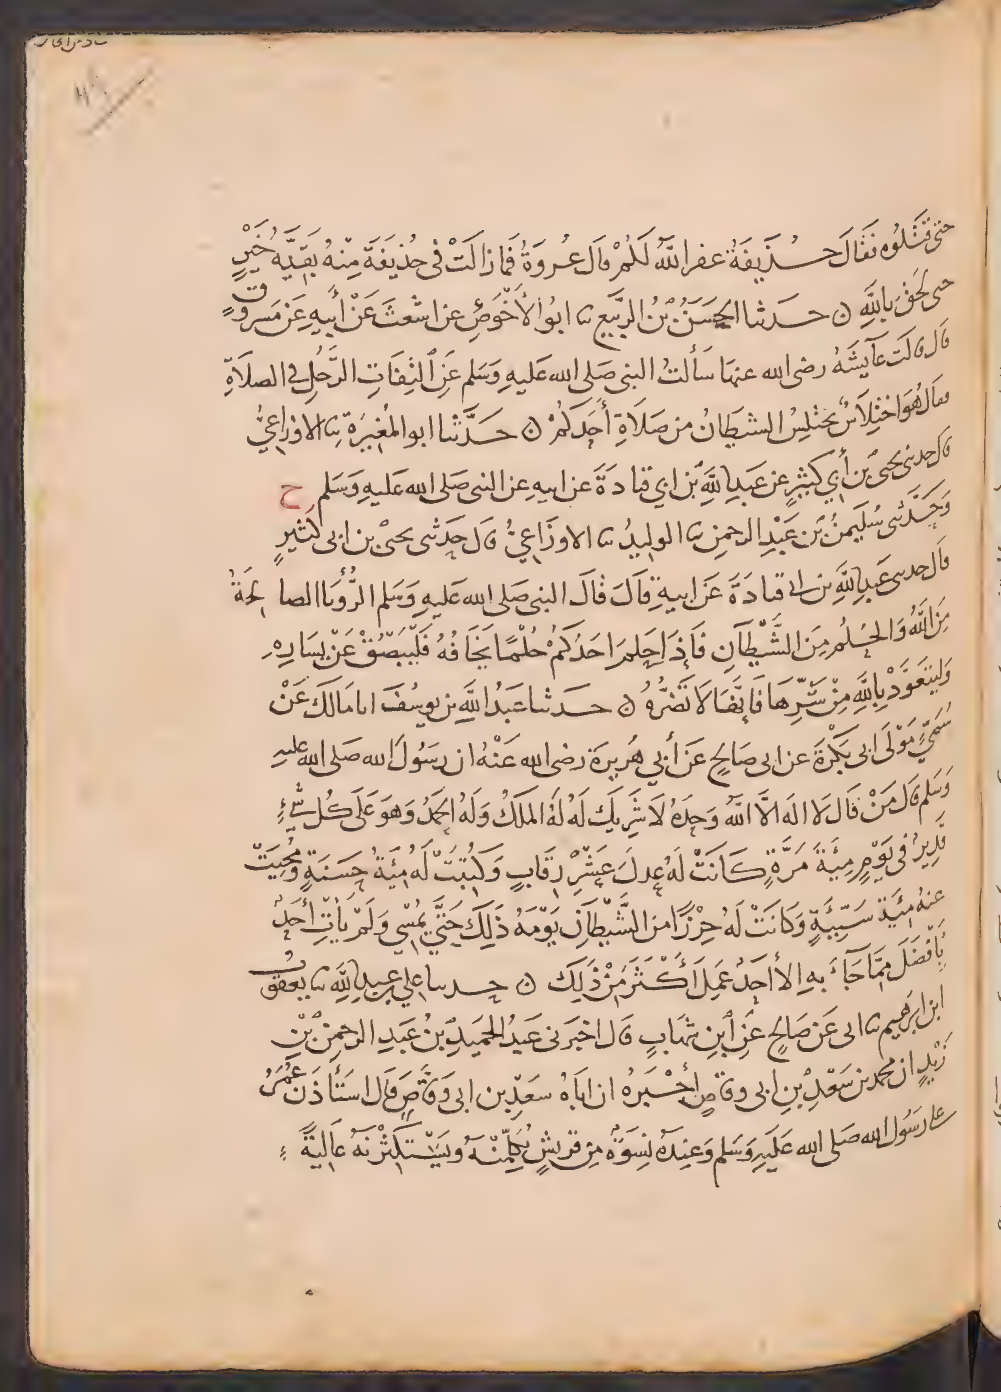 حتى قَتَلُوه فَقَالَ حُذَيفَةُ غفر اللَّهُ لَكُمْ قال عُروَةُ فَمَا زَالَتْ فى حُذيَفَةَ مِنْهُ بَقيَّه خَيْرٍ
حتى لحَقَ بِاللَّهِ ن حدثنا الحَسَنُ بْنُ الرَّبيع نا ابوُ الأَحْوَصِ عن اشعثَ عَنْ أَبيهِ عَنْ مَسروقٍ
قال قالت عآيشَهُ رضى الله عنها سَأَلتُ النبى صَلى الله عليهِ وَسَلم عَنِ التِفاتِ الرَّجُلِ فى الصلاَةِ
فقال هُوَ اخْتِلاَسٌ يختَلِسُ الشيطانُ من صَلاَةِ أَحَدِكُمْ ن حَدَّثنا ابو المُغيرَةِ نا الاوْزاعِيُّ
قال حدثنى يحيى بن أَبي كَثيرٍ عن عَبدِ اللَّهِ بن ابي قتادَةَ عن ابيهِ عن النبى صَلى الله عَليهِ وَسَلم ح
وَحَدَّثنى سُلَيمنُ بْن عَبْدِ الرحمنِ نا الوليدُ نا الاوزَاعِيُّ قال حَدثنى يحيىْ بن ابى كَثيرٍ
قال حدثنى عَبدُ اللَّهِ بن ابى قتادَةَ عَن ابيهِ قَالَ قَالَ النبى صَلى الله عَليهِ وَسَلم الرُّؤْيَا الصالحَةُ
مِنَ اللَّهِ وَالحُلُم مِنَ الشَّيْطَانِ فَإِذَا حَلمَ احَدُكُمْ حُلْمًا يَخَافُهُ فَلْيَبْصُقْ عَنْ يسَارِهِ
وَليتعَوَّذْ بِاللَّهِ مِنْ شَرِّهَا فَإِنَّهَا لاَ تَضُرُّهُ ن حدثنا عَبدُ اللَّهِ بن يوسُفَ انا مَالك عَنْ
سُمَيٍّ مَوْلَى ابى بَكْرٍة عن ابى صَالحٍ عَن أَبي هُريرَة رضى الله عَنْهُ ان رَسُولَ الله صَلى الله عليهِ
وَسَلم قال مَنْ قَالَ لاَ الَه الاَّ اللَّهُ وَحدَهُ لاَ شَرِيكَ لَهُ لَهُ المُلكُ وَلَهُ الحمَدُ وَهوَ عَلَى كُل شَىْءٍ
قَدِيرٌ فى يَوْمٍ مِئَةَ مَرَّةٍ كَانَتْ لَهُ عِدلَ عَشْرِ رِقَابٍ وَكُتِبَتْ لَهُ مِئَةُ حَسَنَةٍ وَمحُيَتْ
عنهُ مِئَةُ سَيِّئَةٍ وَكَانَتْ لَهُ حِرْزًا منَ الشَّيْطَانِ يَوْمَهُ ذَلِكَ حَتَّي يمُسْي وَلَمْ يَأْتِ أَحَدٌ
بِأَفْضَلَ مِمَّا جَاءَ بهِ إِلاَّ أَحَدٌ عَمِلَ أَكْثَرَ مِنْ ذَلِكَ ن حدثنا علي بن عبدِ اللَّهِ نا يعقوُبُ
ابن ابرَهيم نا ابى عَن صَالحٍ عَنِ ابنِ شِهَابٍ قَال اخبَرنى عَبدُ الحميدِ بنُ عَبدِ الرحمنِ بْنِ
زَيْدٍ ان محمد بن سَعْدِ بْنِ ابى وقاصٍ أَخْبَرهُ ان اباَهُ سعَدَ بن ابى وَقَّاصٍ قال استَأْذَنَ عُمَرُ
على رَسُول الله صَلى الله عَلَيهِ وَسَلم وَعنِدَهُ نِسوَةٌ مِن قريشٍ يُكلِّمْنَهُ وَيَسْتَكْثِرْنَهُ عَاليَةً